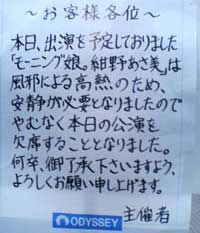 ～お客様各位～
本日、出演を予定しておりました
「モーニング娘。紺野あさ美」は
風邪による高熱のため、
安静が必要となりましたので
やむなく本日の公演を
欠席することとなりました。
何卒、御了承下さいますよう、
よろしくお願い申し上げます。
主催者
ODYSSEY